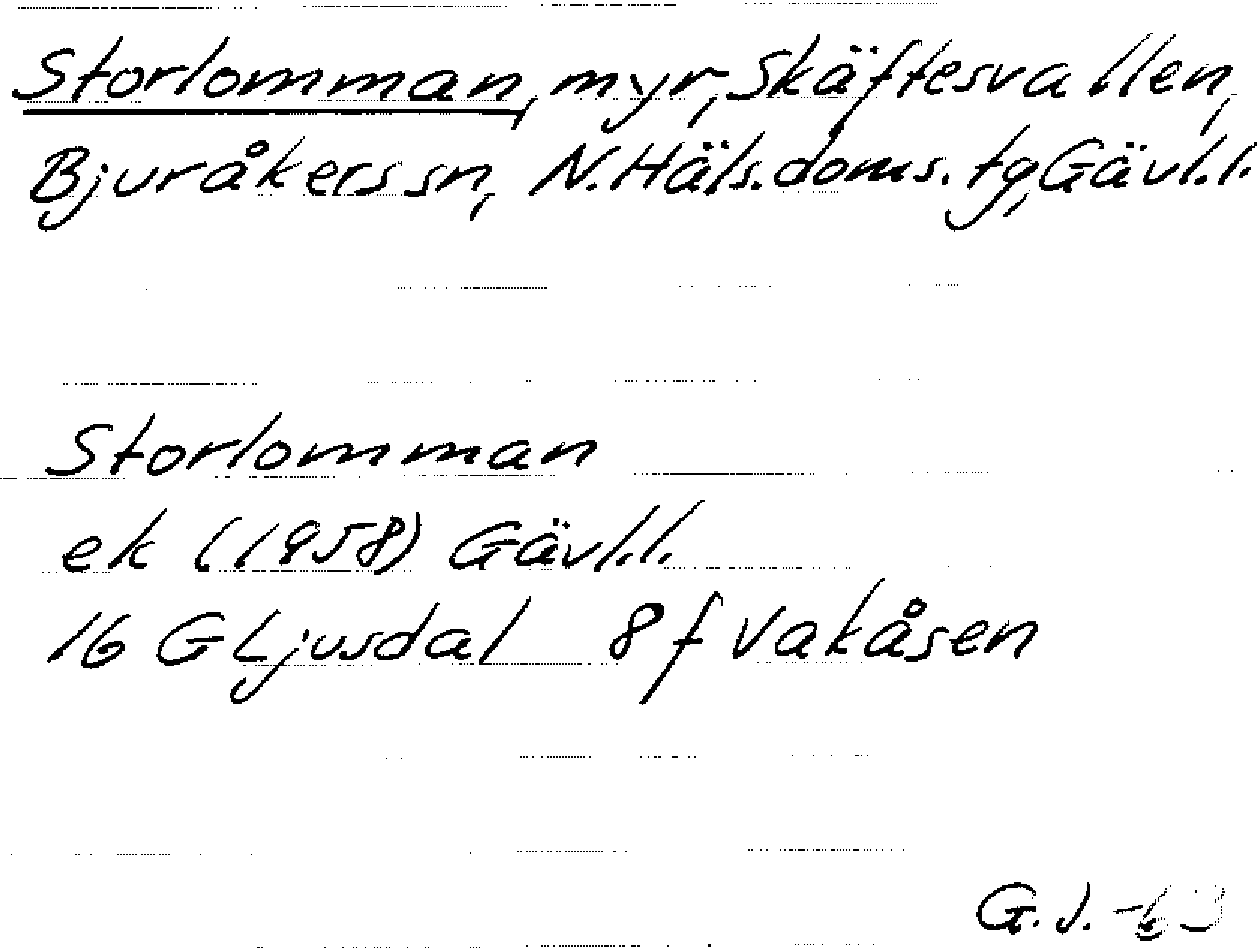 Storlomman, myr, Skäftesvallen,
Bjuråkers sn, N. Häls. doms. tg, Gävl.l.
Storlomman
ek (1958) Gävl.l.
16 G Ljusdal 8 f Vakåsen
G.J.